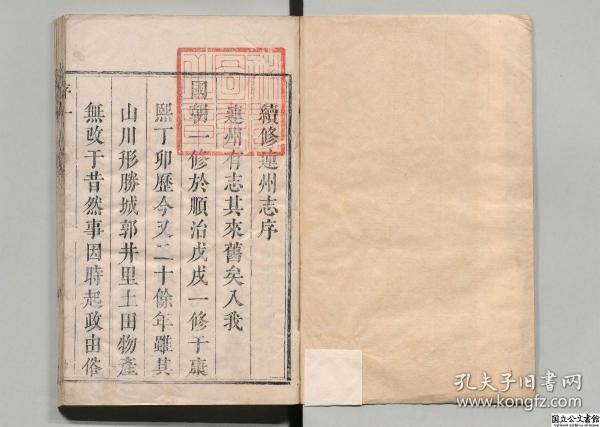 續修連州志序
連州有志其來舊矣入我
國朝一修於順治戊戌一修于康
熙丁卯歷今又二十餘年雖其
山川形勝城郭井里土田物產
無改于昔然事因時起政由俗
序
一
孔夫子旧書网
www.kongfz.com
国立公文書館
National Archives of Japan